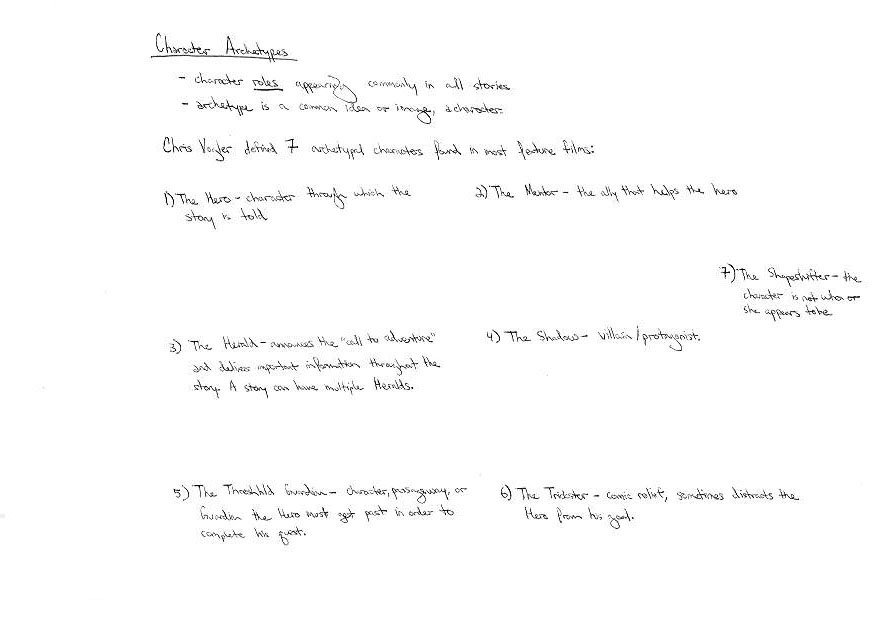 Character Archetypes
- character roles appearing commonly in all stories
- archetype is a common idea or image, a character.
Chris Vogler defined 7 archetypal characters found in most feature films:
1) The Hero - character through which the
story is told
2) The Mentor - the ally that helps the hero
7) The Shapeshifter - the
character is not who or
she appears to be
3) The Herald - announces the "call to adventure"
and delivers important information throughout the
story. A story can have multiple Heralds.
4) The Shadow - villain/protagonist.
5) The Threshold Guardian - character, passageway, or
Guardian the Hero must get past in order to
complete his quest.
6) The Trickster - comic relief, sometimes distracts the
Hero from his goal.